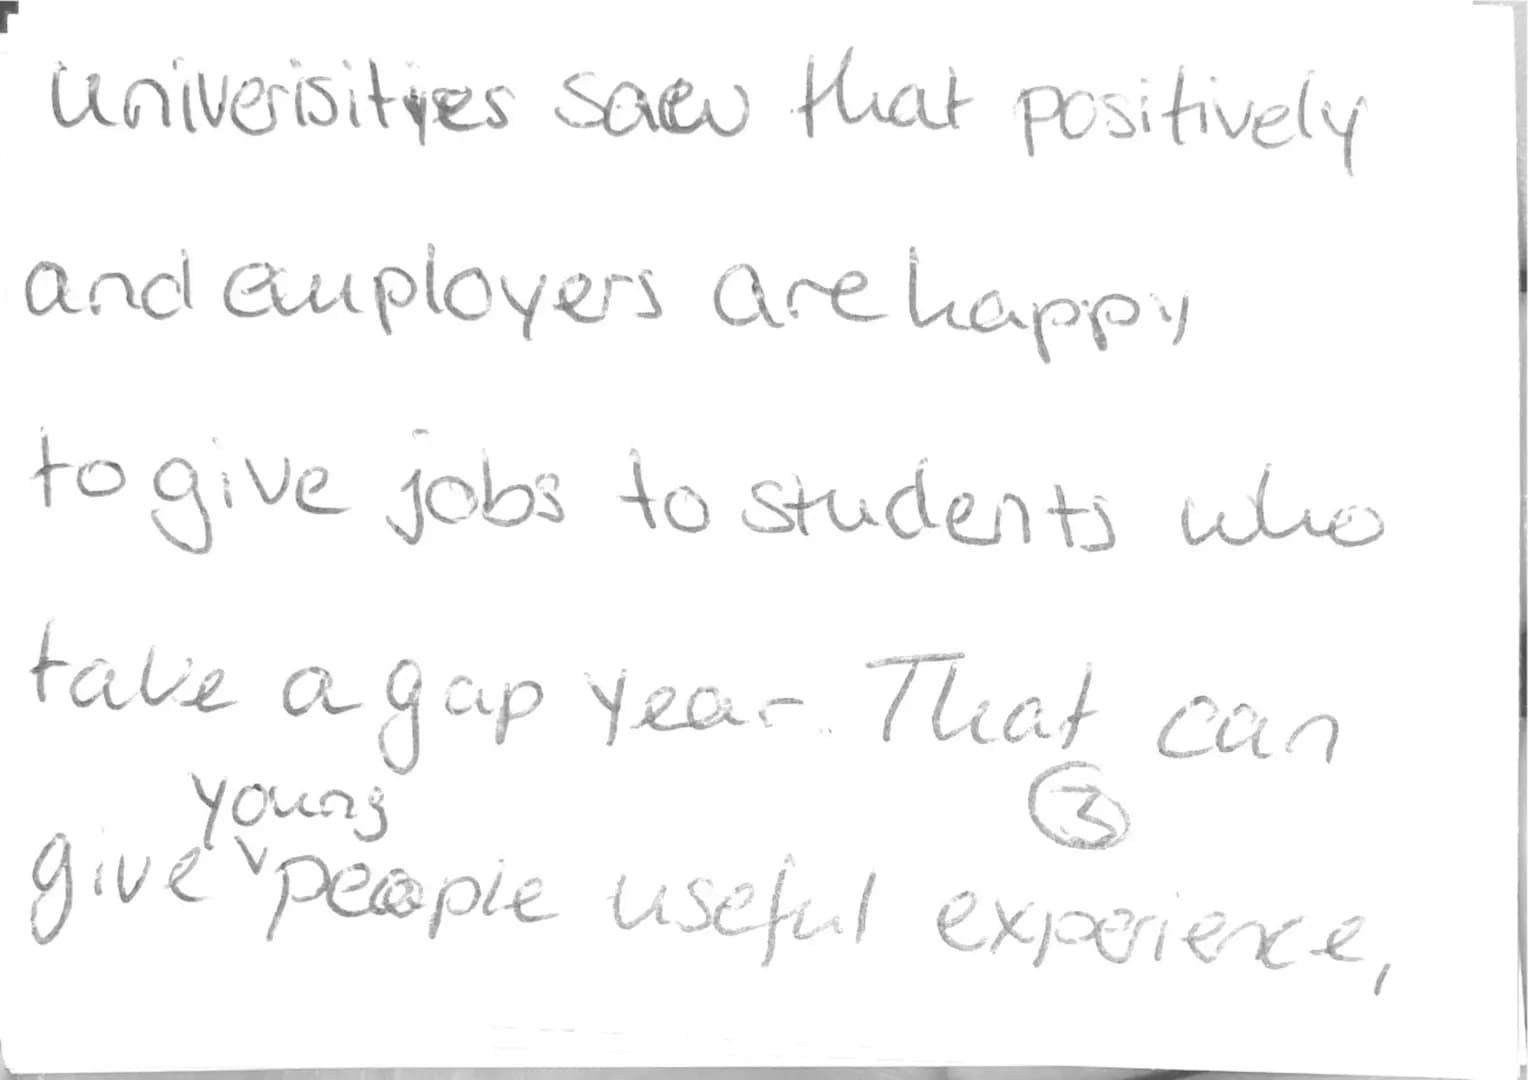 Univerisityes saew that positively
and employers are happy
to give jobs to students who
take a gap year. That can
young
③
give ᵛ people useful experience,